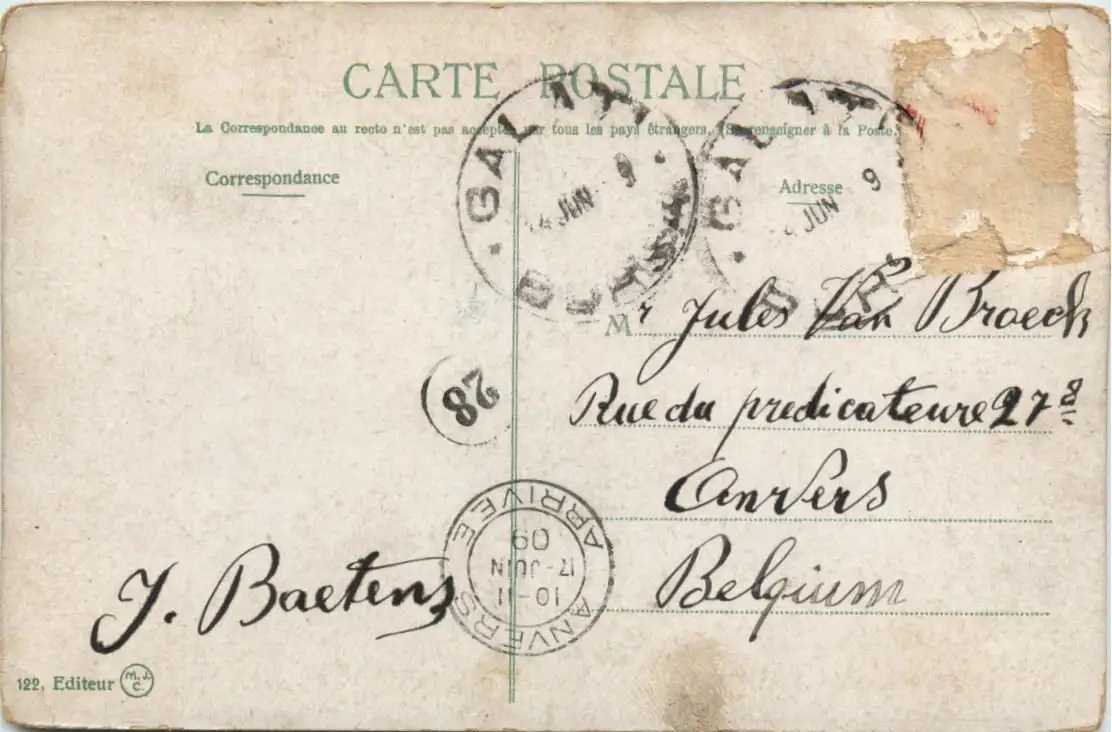 CARTE POSTALE
La Correspondance au recto n'est pas acceptée par tous les pays étrangers. (Se renseigner à la Poste.
Correspondance
Adresse
GALATI
4 JUN 9
GALATI
4 JUN 9
Mr Jules Van Broeck
Rue du predicateure 27 8
Anvers
Belgium
28
ANVERS ARRIVEE
10-11
17-JUIN
09
J. Baetens
122, Editeur M.J.C.